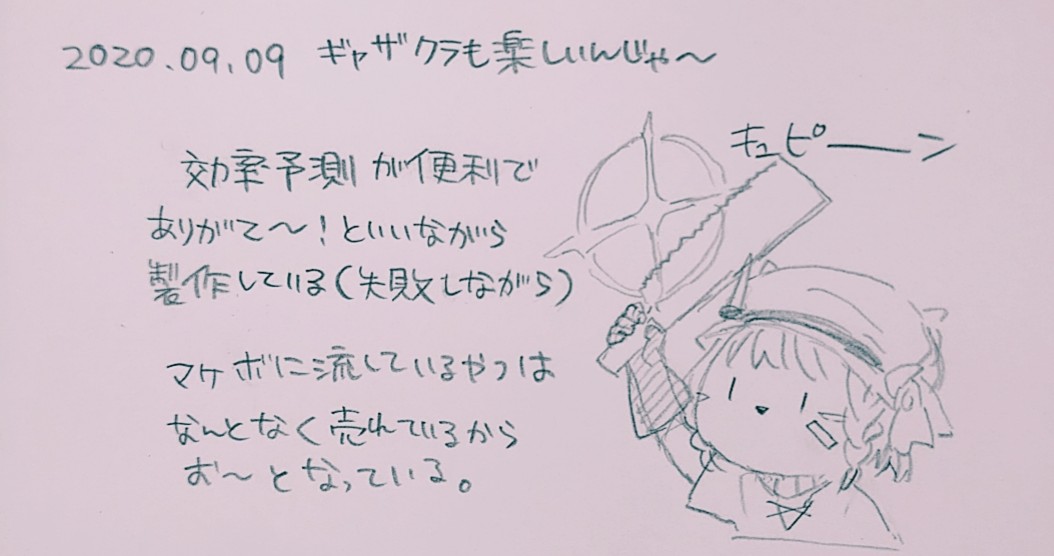 2020.09.09 ギャザクラも楽しいんじゃ〜
キュピーーン
効率予測が便利で
ありがて〜！といいながら
製作している（失敗しながら）
マケボに流しているやつは
なんとなく売れているから
お〜となっている。